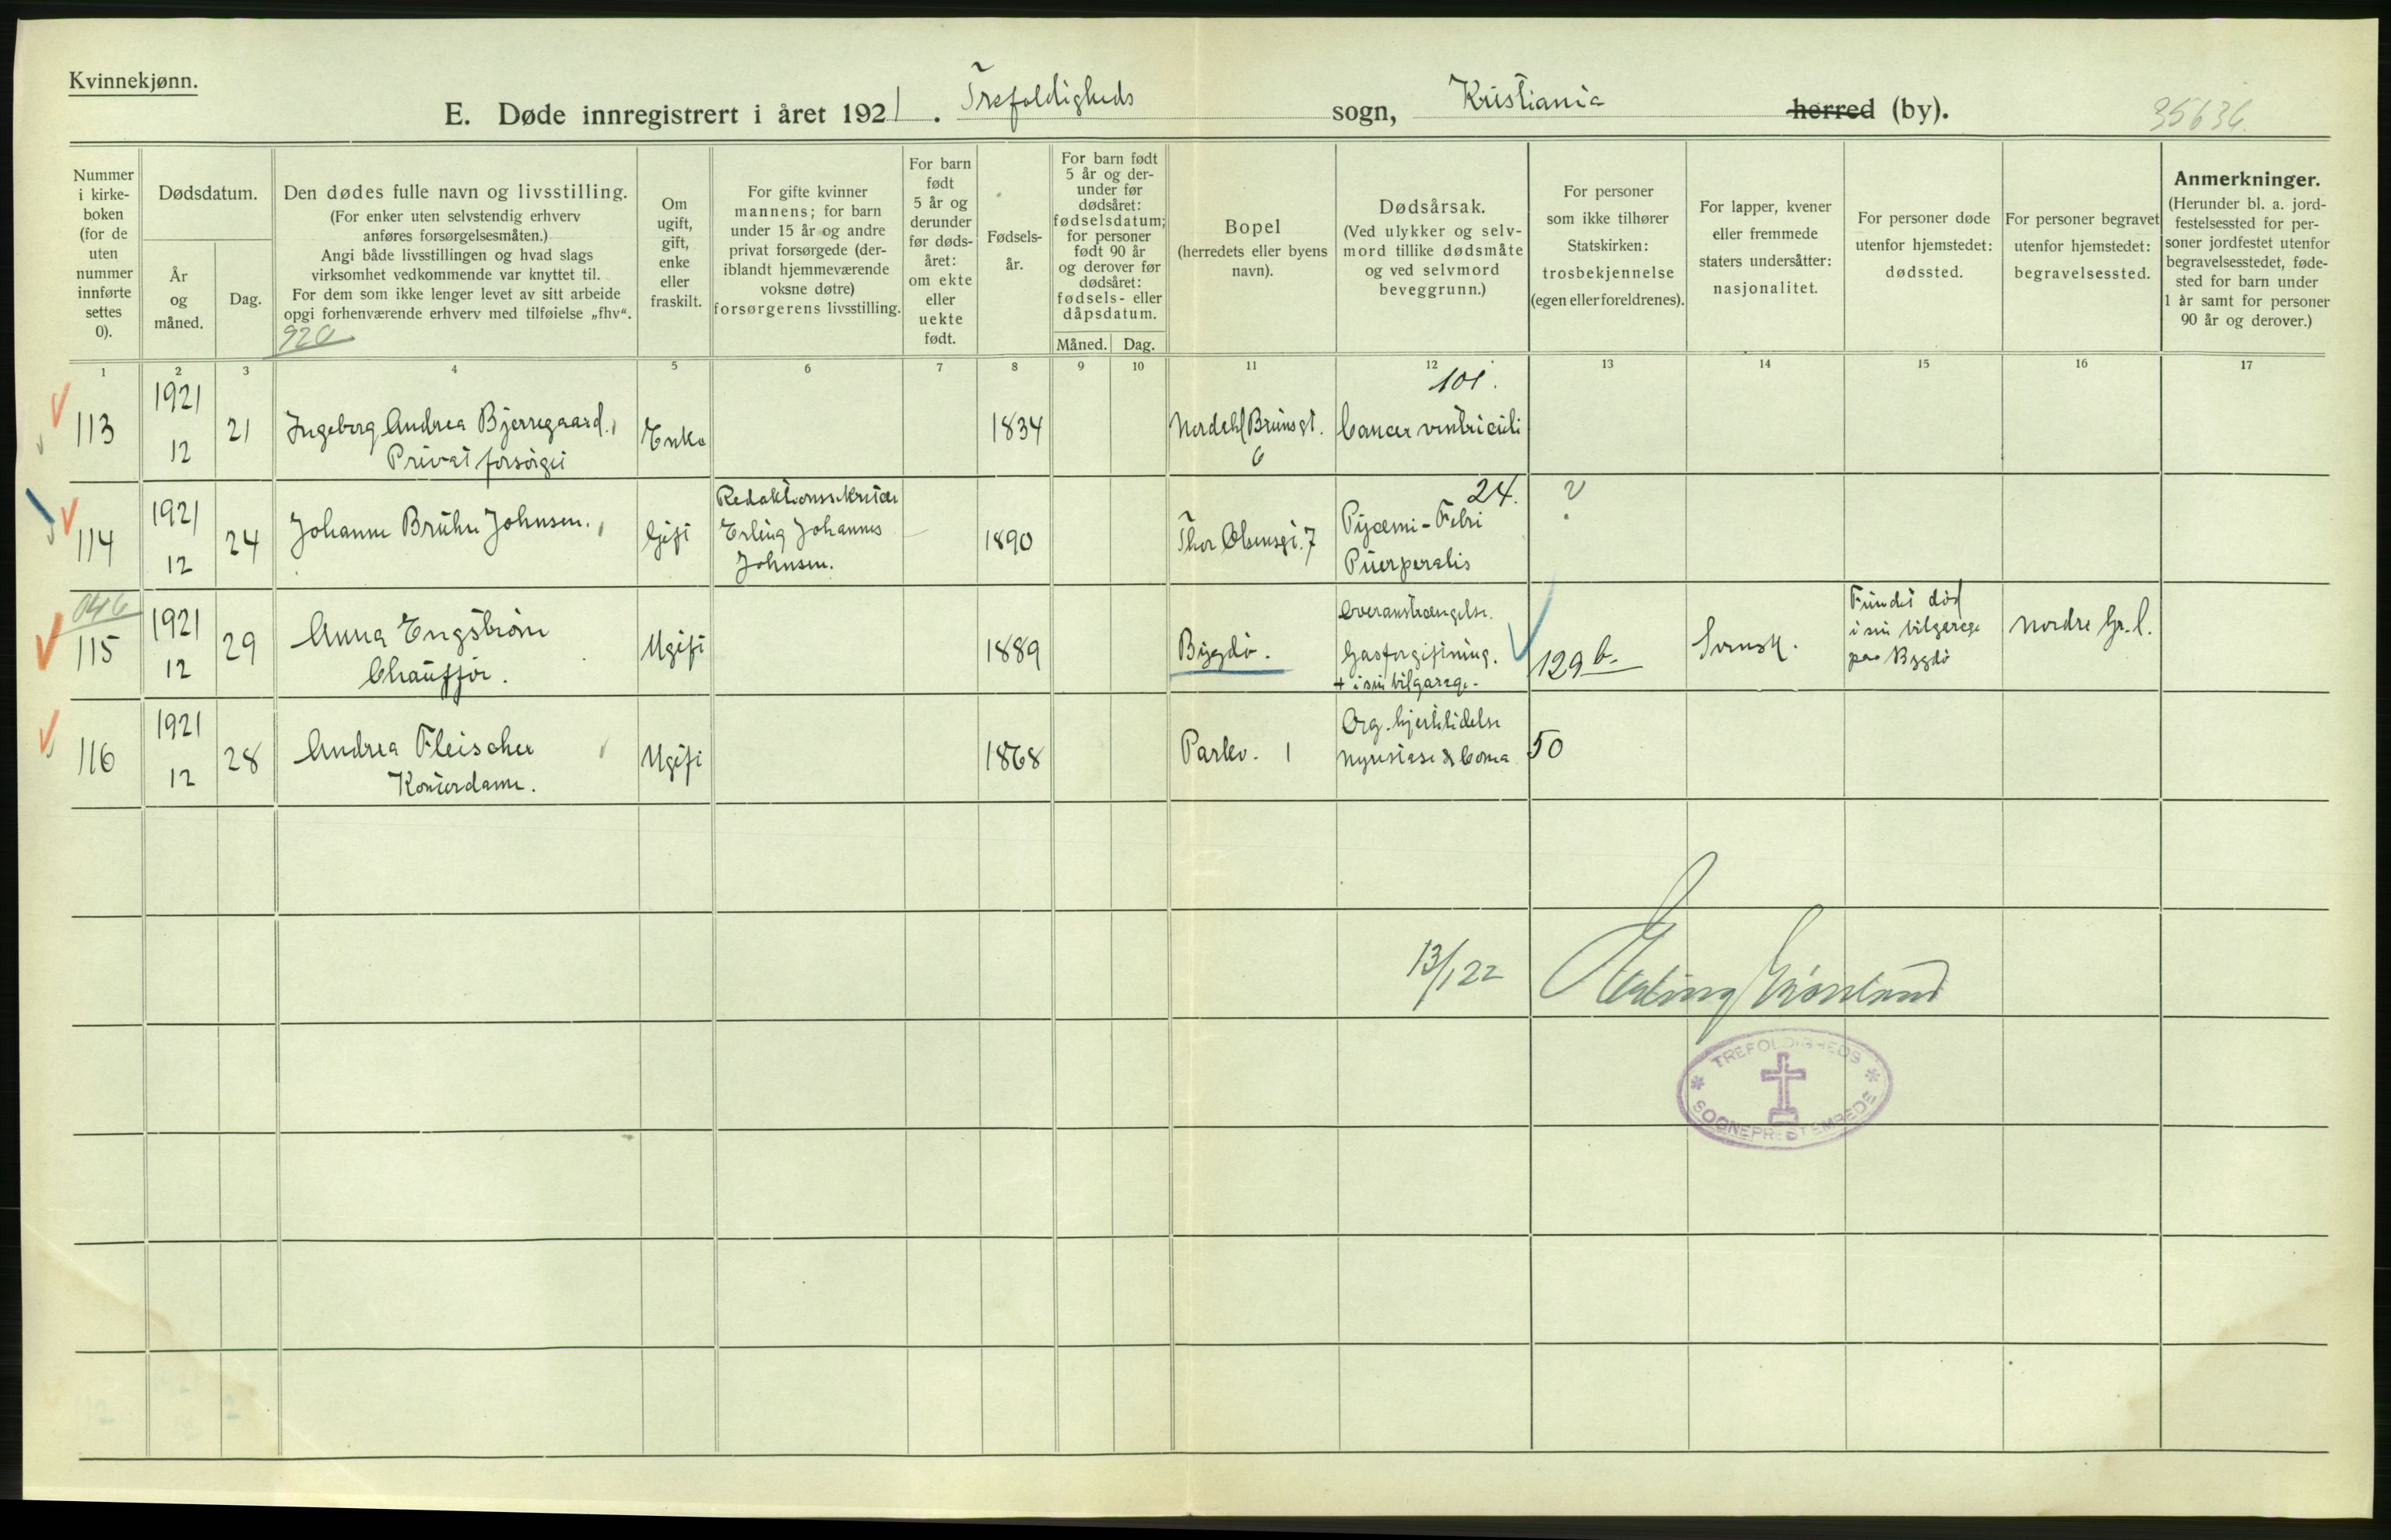 Kvinnekjønn.
E. Døde innregistrert i året 1921. Trefoldigheds sogn, Kristiania herred (by).
35636.
Nummer
i kirke-
boken
(for de
uten
nummer
innførte
settes
0).
Dødsdatum.
År
og
måned.
Dag.
Den dødes fulle navn og livsstilling.
(For enker uten selvstendig erhverv
anføres forsørgelsesmåten.)
Angi både livsstillingen og hvad slags
virksomhet vedkommende var knyttet til.
For dem som ikke lenger levet av sitt arbeide
opgi forhenværende erhverv med tilføielse „fhv“.
920
Om
ugift,
gift,
enke
eller
fraskilt.
For gifte kvinner
mannens; for barn
under 15 år og andre
privat forsørgede (der-
iblandt hjemmeværende
voksne døtre)
forsørgerens livsstilling.
For barn
født
5 år og
derunder
før døds-
året:
om ekte
eller
uekte
født.
Fødsels-
år.
For barn født
5 år og der-
under før
dødsåret:
fødselsdatum;
for personer
født 90 år
og derover før
dødsåret:
fødsels- eller
dåpsdatum.
Måned. Dag.
Bopel
(herredets eller byens
navn).
Dødsårsak.
(Ved ulykker og selv-
mord tillike dødsmåte
og ved selvmord
beveggrunn.)
For personer
som ikke tilhører
Statskirken:
trosbekjennelse
(egen eller foreldrenes).
For lapper, kvener
eller fremmede
staters undersåtter:
nasjonalitet.
For personer døde
utenfor hjemstedet:
dødssted.
For personer begravet
utenfor hjemstedet:
begravelsessted.
Anmerkninger.
(Herunder bl. a. jord-
festelsessted for per-
soner jordfestet utenfor
begravelsesstedet, føde-
sted for barn under
1 år samt for personer
90 år og derover.)
1 2 3 4 5 6 7 8 9 10 11 12 13 14 15 16 17
113
1921
12
21
Ingeborg Andrea Bjerregaard.,
Privat forsørget
Enke
1834
Nordahl Brunsgt.
6
101.
Cancer ventriculi
114
1921
12
24
Johanne Bruhn Johnsen.,
Gift
Redaktionssekretær
Erling Johannes
Johnsen.
1890
Thor Olsensgt. 7
24.
Pyæmi - Febri
Puerperalis
?
046
115
1921
12
29
Anna Engstrøm
Chauffør.
Ugift
1889
Bygdø.
Overanstrængelse.
Gasforgiftning.
+ i sin bilgarage.
129 b.
Svensk.
Fundet død
i sin bilgarage
paa Bygdø
Nordre Gr. l.
116
1921
12
28
Andrea Fleischer
Kontordame.
Ugift
1868
Parkv. 1
Org. hjertelidelse
Nyrestase & Coma
50
13/1 22
Erling Grønland
TREFOLDIGHEDS
SOGNEPRESTEMBEDE